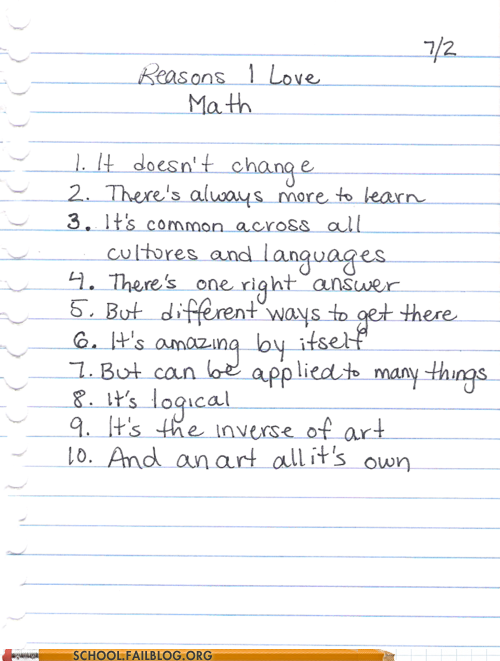 7/2
Reasons I Love
Math
1. It doesn't change
2. There's always more to learn
3. It's common across all
cultures and languages
4. There's one right answer
5. But different ways to get there
6. It's amazing by itself
7. But can be applied to many things
8. It's logical
9. It's the inverse of art
10. And an art all it's own
SCHOOL.FAILBLOG.ORG